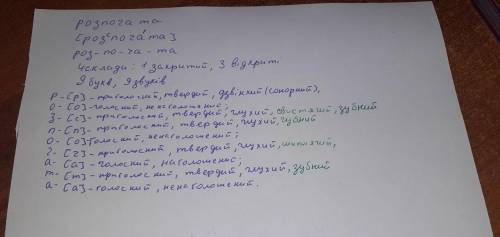 розпоча та
[розᶜпоча́та]
роз-по-ча-та
4 склади: 1 закритий, 3 відкриті
9 букв, 9 звуків
р-[р]-приголосний, твердий, дзвінкий (сонорний),
о-[о]-голосний, ненаголошений;
з-[с]-приголосний, твердий, глухий, свистячий, зубний
п-[п]-приголосний, твердий, глухий, губний
о-[о]голосний, ненаголошений;
ч-[ч]-приголосний, твердий, глухий, шиплячий,
а-[а]-голосний, наголошений;
т-[т]-приголосний, твердий, глухий, зубний
а-[а]-голосний, ненаголошений.